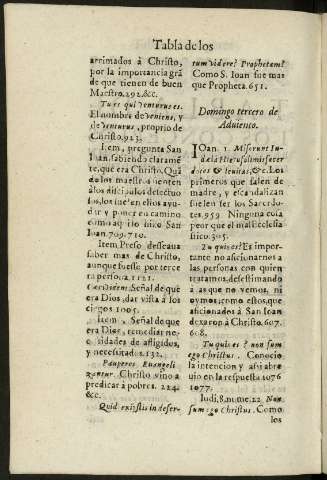 Tabla de los
arrimados à Christo,
por la importancia grã
de que tienen de buen
Maestro. 292. &c.
Tu es qui venturus es.
El nombre de veniens, y
de venturus, proprio de
Christo. 923.
Item, pregunta San
Iuan, sabiendo clarame-
te, que era Christo. Quã
do los maestros sienten
à los dicipulos defectuo
sos, los suelen ellos ayu-
dar y poner en camino
como aqui lo hizo San
Ioan. 709. 710.
Item, Preso desseaua
saber mas de Christo,
aunque fuesse por terce
ra persona. 1121.
Cæci vident. Señal de que
era Dios, dar vista à los
ciegos 1005.
Item, Señal de que
era Dios, remediar ne-
cesidades de afligidos,
y necessitados. 132.
Pauperes Euangeli
zantur. Christo vino a
predicar à pobres. 224.
&c.
Quid existis in deser-
tum videre? Prophetam?
Como S. Ioan fue mas
que Propheta. 651.
Domingo tercero de
Aduiento.
IOan. 1. Miserunt Iu-
dei ab Hierosolimis sacer
dotes & leuitas, &c. Los
primeros que salen de
madre, y escandalizan
suelen ser los Sacerdo-
tes. 959 Ninguna cosa
peor que el mal ecclesia
stico. 305.
Tu quis es? Es importan-
te no aficionarnos a
las personas con quien
tratamos, desestimando
à las que no vemos, ni
oymos; como estos, que
aficionados à San Ioan
dexaron à Christo. 607.
608.
Tu quis es? non sum
ego Christus. Conocio
la intencion y assi abre
uio en la respuesta 1076
1077.
Iudi, 8. nume. 22. Non
sum ego Christus. Como
los